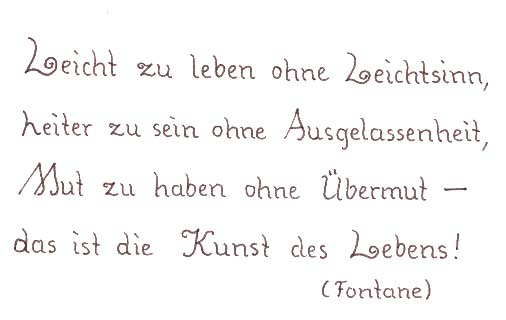 Leicht zu leben ohne Leichtsinn,
heiter zu sein ohne Ausgelassenheit,
Mut zu haben ohne Übermut –
das ist die Kunst des Lebens!
(Fontane)